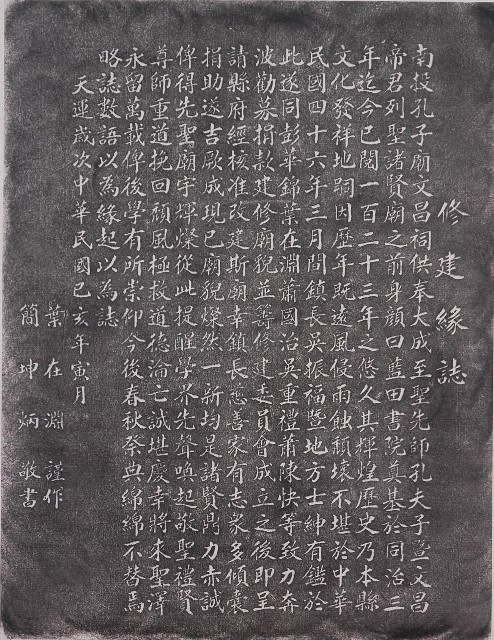 修建緣誌
南投孔子廟文昌祠供奉大成至聖先師孔夫子暨文昌
帝君列聖諸賢廟之前身顏曰藍田書院奠基於同治三
年迄今已閱一百二十三年之悠久其輝煌歷史乃本縣
文化發祥地嗣因歷年既遠風侵雨蝕頹壞不堪於中華
民國四十六年三月間鎮長吳振福暨地方士紳有鑑於
此遂同彭華錦葉在淵蕭國治吳重禮蕭陳快等致力奔
波勸募捐款建修廟貌並籌修建委員會成立之後即呈
請縣府經核准改建斯廟幸鎮長慈善家有志眾多傾囊
捐助遂吉厥成現已廟貌燦然一新均是諸賢鼎力赤誠
俾得先聖廟宇輝燦從此提醒學界先聲喚起敬聖禮賢
尊師重道挽回頹風極救道德淪亡誠堪慶幸將來聖澤
永留萬載俾後學有所崇仰今後春秋祭典綿綿不替焉
略誌數語以為緣起以為誌
天運歲次中華民國己亥年寅月
葉在淵謹作
簡坤炳敬書